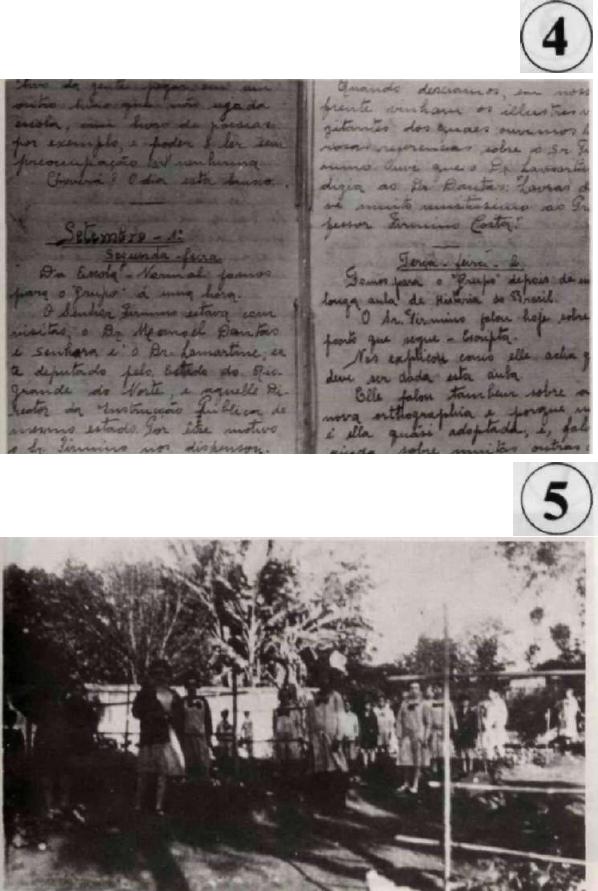 4
livro da gente pegar em um
outro livro que não seja da
escola, um livro de poesias
por exemplo, e poder ler sem
preocupação nenhuma.
Choverá? O dia está brusco.
Setembro - 1º
Segunda-feira
Da Escola-Normal fomos
para o "Grupo" á uma hora.
O Senhor Firmino estava com
visitas, o Dr. Manoel Dantas
e senhora e o Dr. Lamartine, es
te deputado pelo Estado do Rio
Grande do Norte e aquelle Di-
rector da Instrucção Publica do
mesmo estado. Por êste motivo
o Sr. Firmino nos dispensou.
Quando desciamos, em noss
frente vinham os illustres v
zitantes dos quaes ouvimos h
rosas referencias sobre o Sr. Fi
mino. Ouvi que o Dr. Lamartin
dizia ao Dr. Dantas: "Lavras d
ve muito muitissimo ao Pro
fessor Firmino Costa."
Terça-feira - 2
Fomos para o "Grupo" depois de um
longa aula de Historia do Brasil.
O Sr. Firmino falou hoje sobre
ponto que segue - Escripta.
Nos explicou como elle acha q
deve ser dada esta aula.
Elle falou tambem sobre a
nova orthographia e porque n
é ella quasi adoptada, e, falo
ainda sobre muitas outras
5